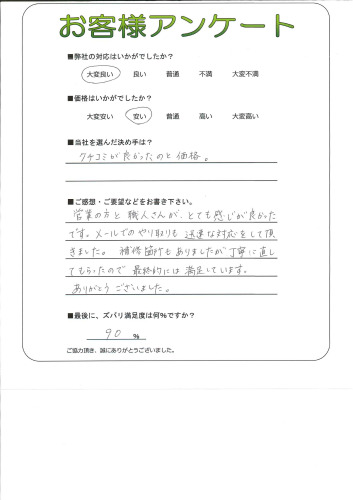 お客様アンケート
■弊社の対応はいかがでしたか？
大変良い 良い 普通 不満 大変不満
■価格はいかがでしたか？
大変安い 安い 普通 高い 大変高い
■当社を選んだ決め手は？
クチコミが良かったのと価格。
■ご感想・ご要望などをお書き下さい。
営業の方と職人さんが、とても感じが良かった
です。メールでのやり取りも迅速な対応をして頂
きました。補修箇所もありましたが丁寧に直し
てもらったので最終的には満足しています。
ありがとうございました。
■最後に、ズバリ満足度は何%ですか？
90 %
ご協力頂き、誠にありがとうございました。